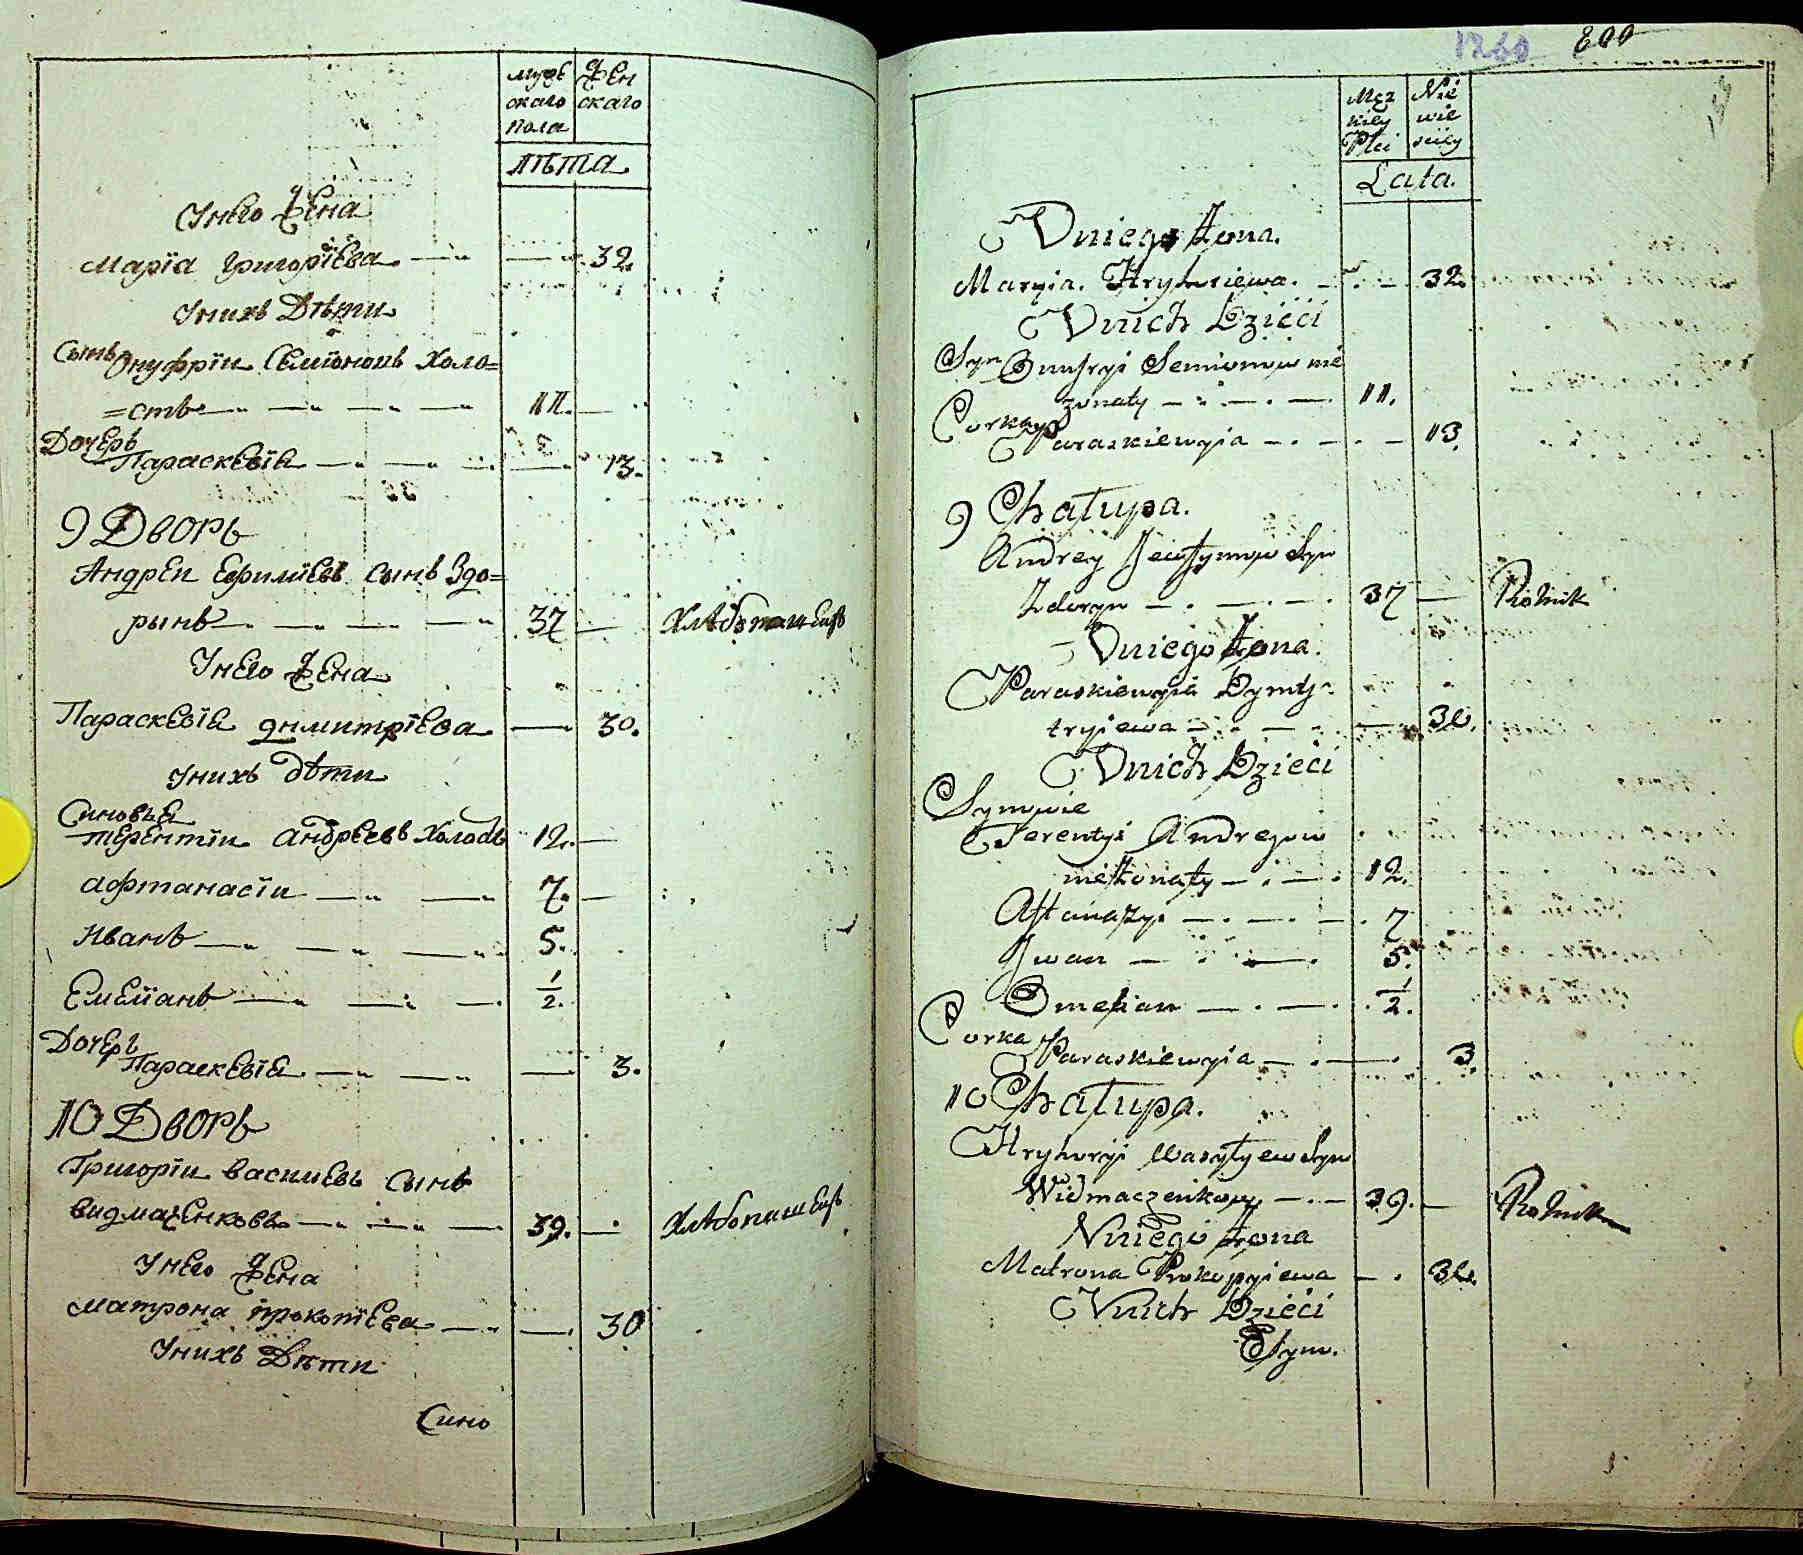 муже
скаго
пола
жен
скаго
лѣта
Унего жена
Марїа григорїева 32.
Унихъ Дѣти
Сынъ Онуфрїи Семїоновъ холо=
=стъ 11.
Дочерь
Параскевїа 13.
9 Дворъ
Андреи Ефимїевъ сынъ Здо=
рынъ 37 Хлѣбопашецъ
Унего жена
Параскевїа димитрїева 30.
Унихъ дѣти
Синовьа
терентїи андреевъ холостъ 12.
афтанасїи 7.
Иванъ 5.
Емелїанъ 1/2.
Дочерь
Параскевїа 3.
10 Дворъ
Григорїи василїевъ сынъ
видмаченковъ 39. Хлѣбопашецъ
Унего жена
матрона прокопїева 30
Унихъ Дѣти
Сино
1260 800
Męz
kiey
Płci
Nie
wie
sciey
Lata.
Vniego Żona.
Maryia. Hryhoriewa. 32.
Vnich Dzieci
Syn Onufryi Semionow nie
zonaty 11.
Corka
Paraskiewyia 13.
9 Chałupa.
Andrey Jewfymow Syn
Zdoryn 37 Rolnik
Vniego Żona.
Paraskiewyia Dymi
tryiewa 30.
Vnich Dzieci
Synowie
Terentyi Andreyow
nieżonaty 12.
Aftanazyi 7
Iwan 5.
Omelian 1/2.
Corka
Paraskiewyia 3
10 Chałupa.
Hryhoryi Wasylyew Syn
Widmaczenkow 39. Rolnik
Vniego Żona
Matrona Prokopyiewa 30.
Vnich Dzieci
Syno.